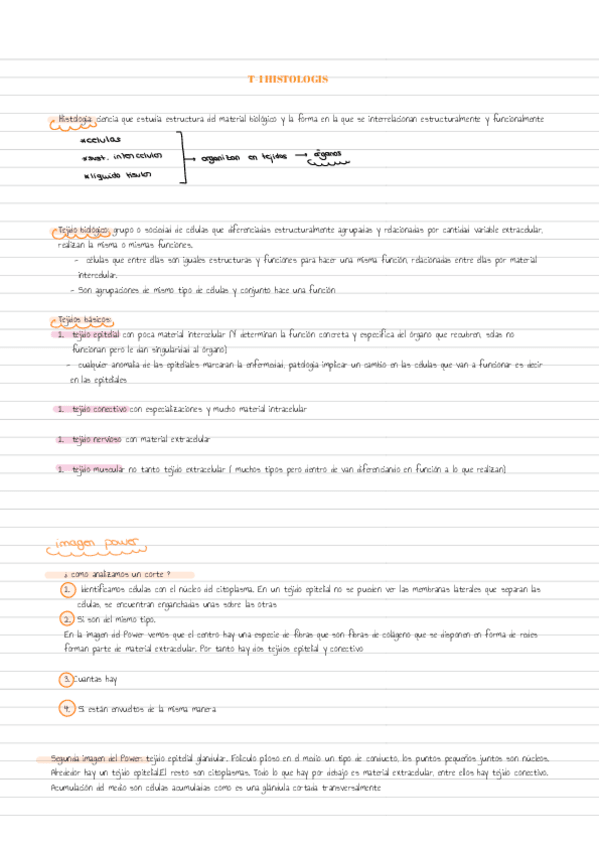 T 1 HISTOLOGIS
- Histología: ciencia que estudia estructura del material biológico y la forma en la que se interrelacionan estructuralmente y funcionalmente
*celulas
*sust. intercelular
→ organizan en tejidos → órganos
*líquido tisular
Tejido biológico: grupo o sociedad de células que diferenciadas estructuralmente agrupadas y relacionadas por cantidad variable extracelular,
realizan la misma o mismas funciones.
- células que entre ellas son iguales estructuras y funciones para hacer una misma función, relacionadas entre ellas por material
intercelular.
- Son agrupaciones de mismo tipo de células y conjunto hace una función
Tejidos básicos:
1. tejido epitelial con poca material intercelular (Y determinan la función concreta y especifica del órgano que recubren, solas no
funcionan pero le dan singularidad al órgano)
- cualquier anomalía de las epiteliales marcaran la enfermedad, patología implicar un cambio en las células que van a funcionar es decir
en las epiteliales
1. tejido conectivo con especializaciones y mucho material intracelular
1. tejido nervioso con material extracelular
1. tejido muscular no tanto tejido extracelular ( muchos tipos pero dentro de van diferenciando en función a lo que realizan)
imagen power
¿ como analizamos un corte ?
1. Identificamos células con el núcleo del citoplasma. En un tejido epitelial no se pueden ver las membranas laterales que separan las
células, se encuentran enganchadas unas sobre las otras
2. Si son del mismo tipo.
En la imagen del Power vemos que el centro hay una especie de fibras que son fibras de colágeno que se disponen en forma de redes
forman parte de material extracelular. Por tanto hay dos tejidos epitelial y conectivo
3. Cuantas hay
4. Si están envueltos de la misma manera
Segunda imagen del Power: tejido epitelial glandular. Folículo piloso en el medio un tipo de conducto, los puntos pequeños juntos son núcleos.
Alrededor hay un tejido epitelial.El resto son citoplasmas. Todo lo que hay por debajo es material extracelular, entre ellos hay tejido conectivo.
Acumulación del medio son células acumuladas como es una glándula cortada transversalmente